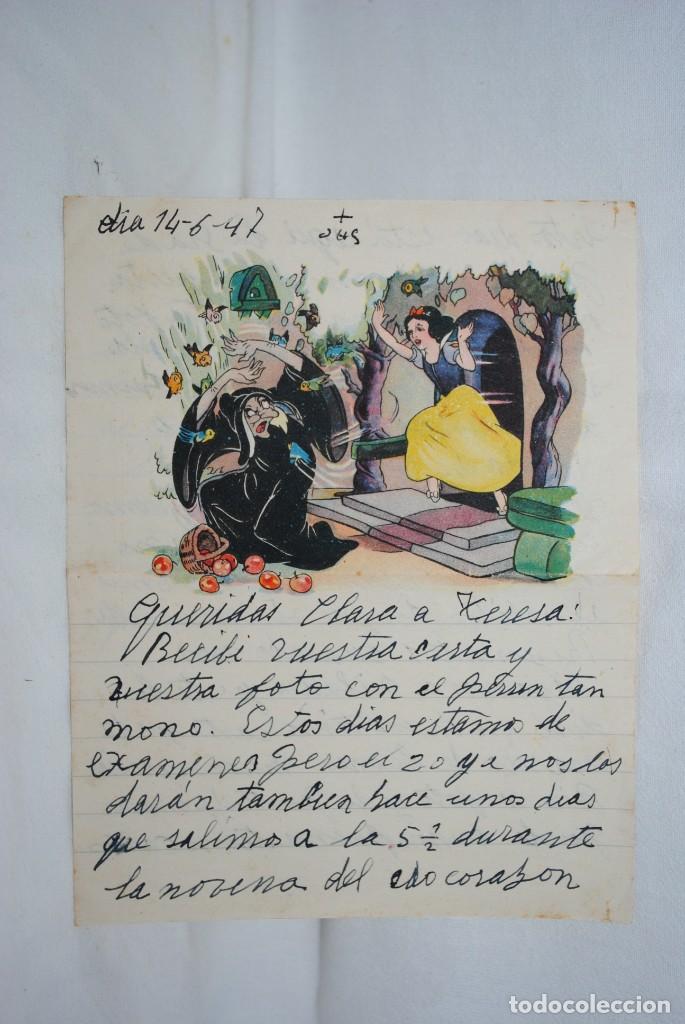 dia 14-6-47
+
JHS
Queridas Clara a Teresa:
Recibi vuestra carta y
vuestra foto con el perrin tan
mono. Estos dias estamos de
examenes pero el 20 ya nos los
darán tambien hace unos dias
que salimos a la 5 ½ durante
la novena del corazon
todocoleccion
todocoleccion.net